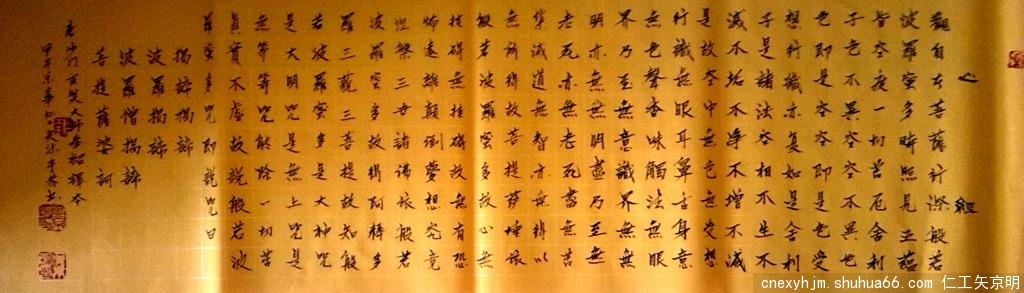 心經
觀自在菩薩行深般若
波羅蜜多時照見五蘊
皆空度一切苦厄舍利
子色不異空空不異色
色即是空空即是色受
想行識亦复如是舍利
子是諸法空相不生不
滅不垢不淨不增不減
是故空中無色無受想
行識無眼耳鼻舌身意
無色聲香味觸法無眼
界乃至無意識界無無
明亦無無明盡乃至無
老死亦無老死盡無苦
集滅道無智亦無得以
無所得故菩提薩埵依
般若波羅蜜多故心無
挂礙無挂礙故無有恐
怖遠離顛倒夢想究竟
涅槃三世諸佛依般若
波羅蜜多故得阿耨多
羅三藐三菩提故知般
若波羅蜜多是大神咒
是大明咒是無上咒是
無等等咒能除一切苦
真實不虛故說般若波
羅蜜多咒即說咒曰
揭諦揭諦
波羅揭諦
波羅僧揭諦
菩提薩婆訶
唐沙門玄奘大師奉詔譯本
甲午
cnexyhjm.shuhua66.com 仁工矢京明